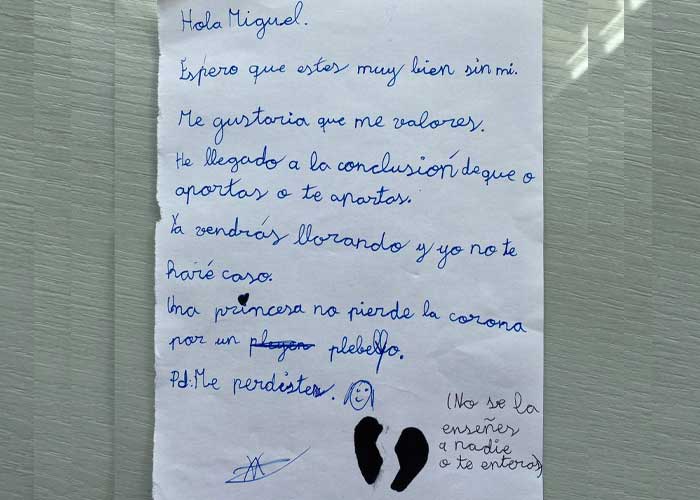 Hola Miguel.
Espero que estes muy bien sin mi.
Me gustaria que me valores.
He llegado a la conclusión de que o
aportas o te apartas.
Ya vendrás llorando y yo no te
haré caso.
Una princesa no pierde la corona
por un pleyen plebello.
Pd: Me perdistes.
(No se la
enseñes
a nadie
o te enteras)